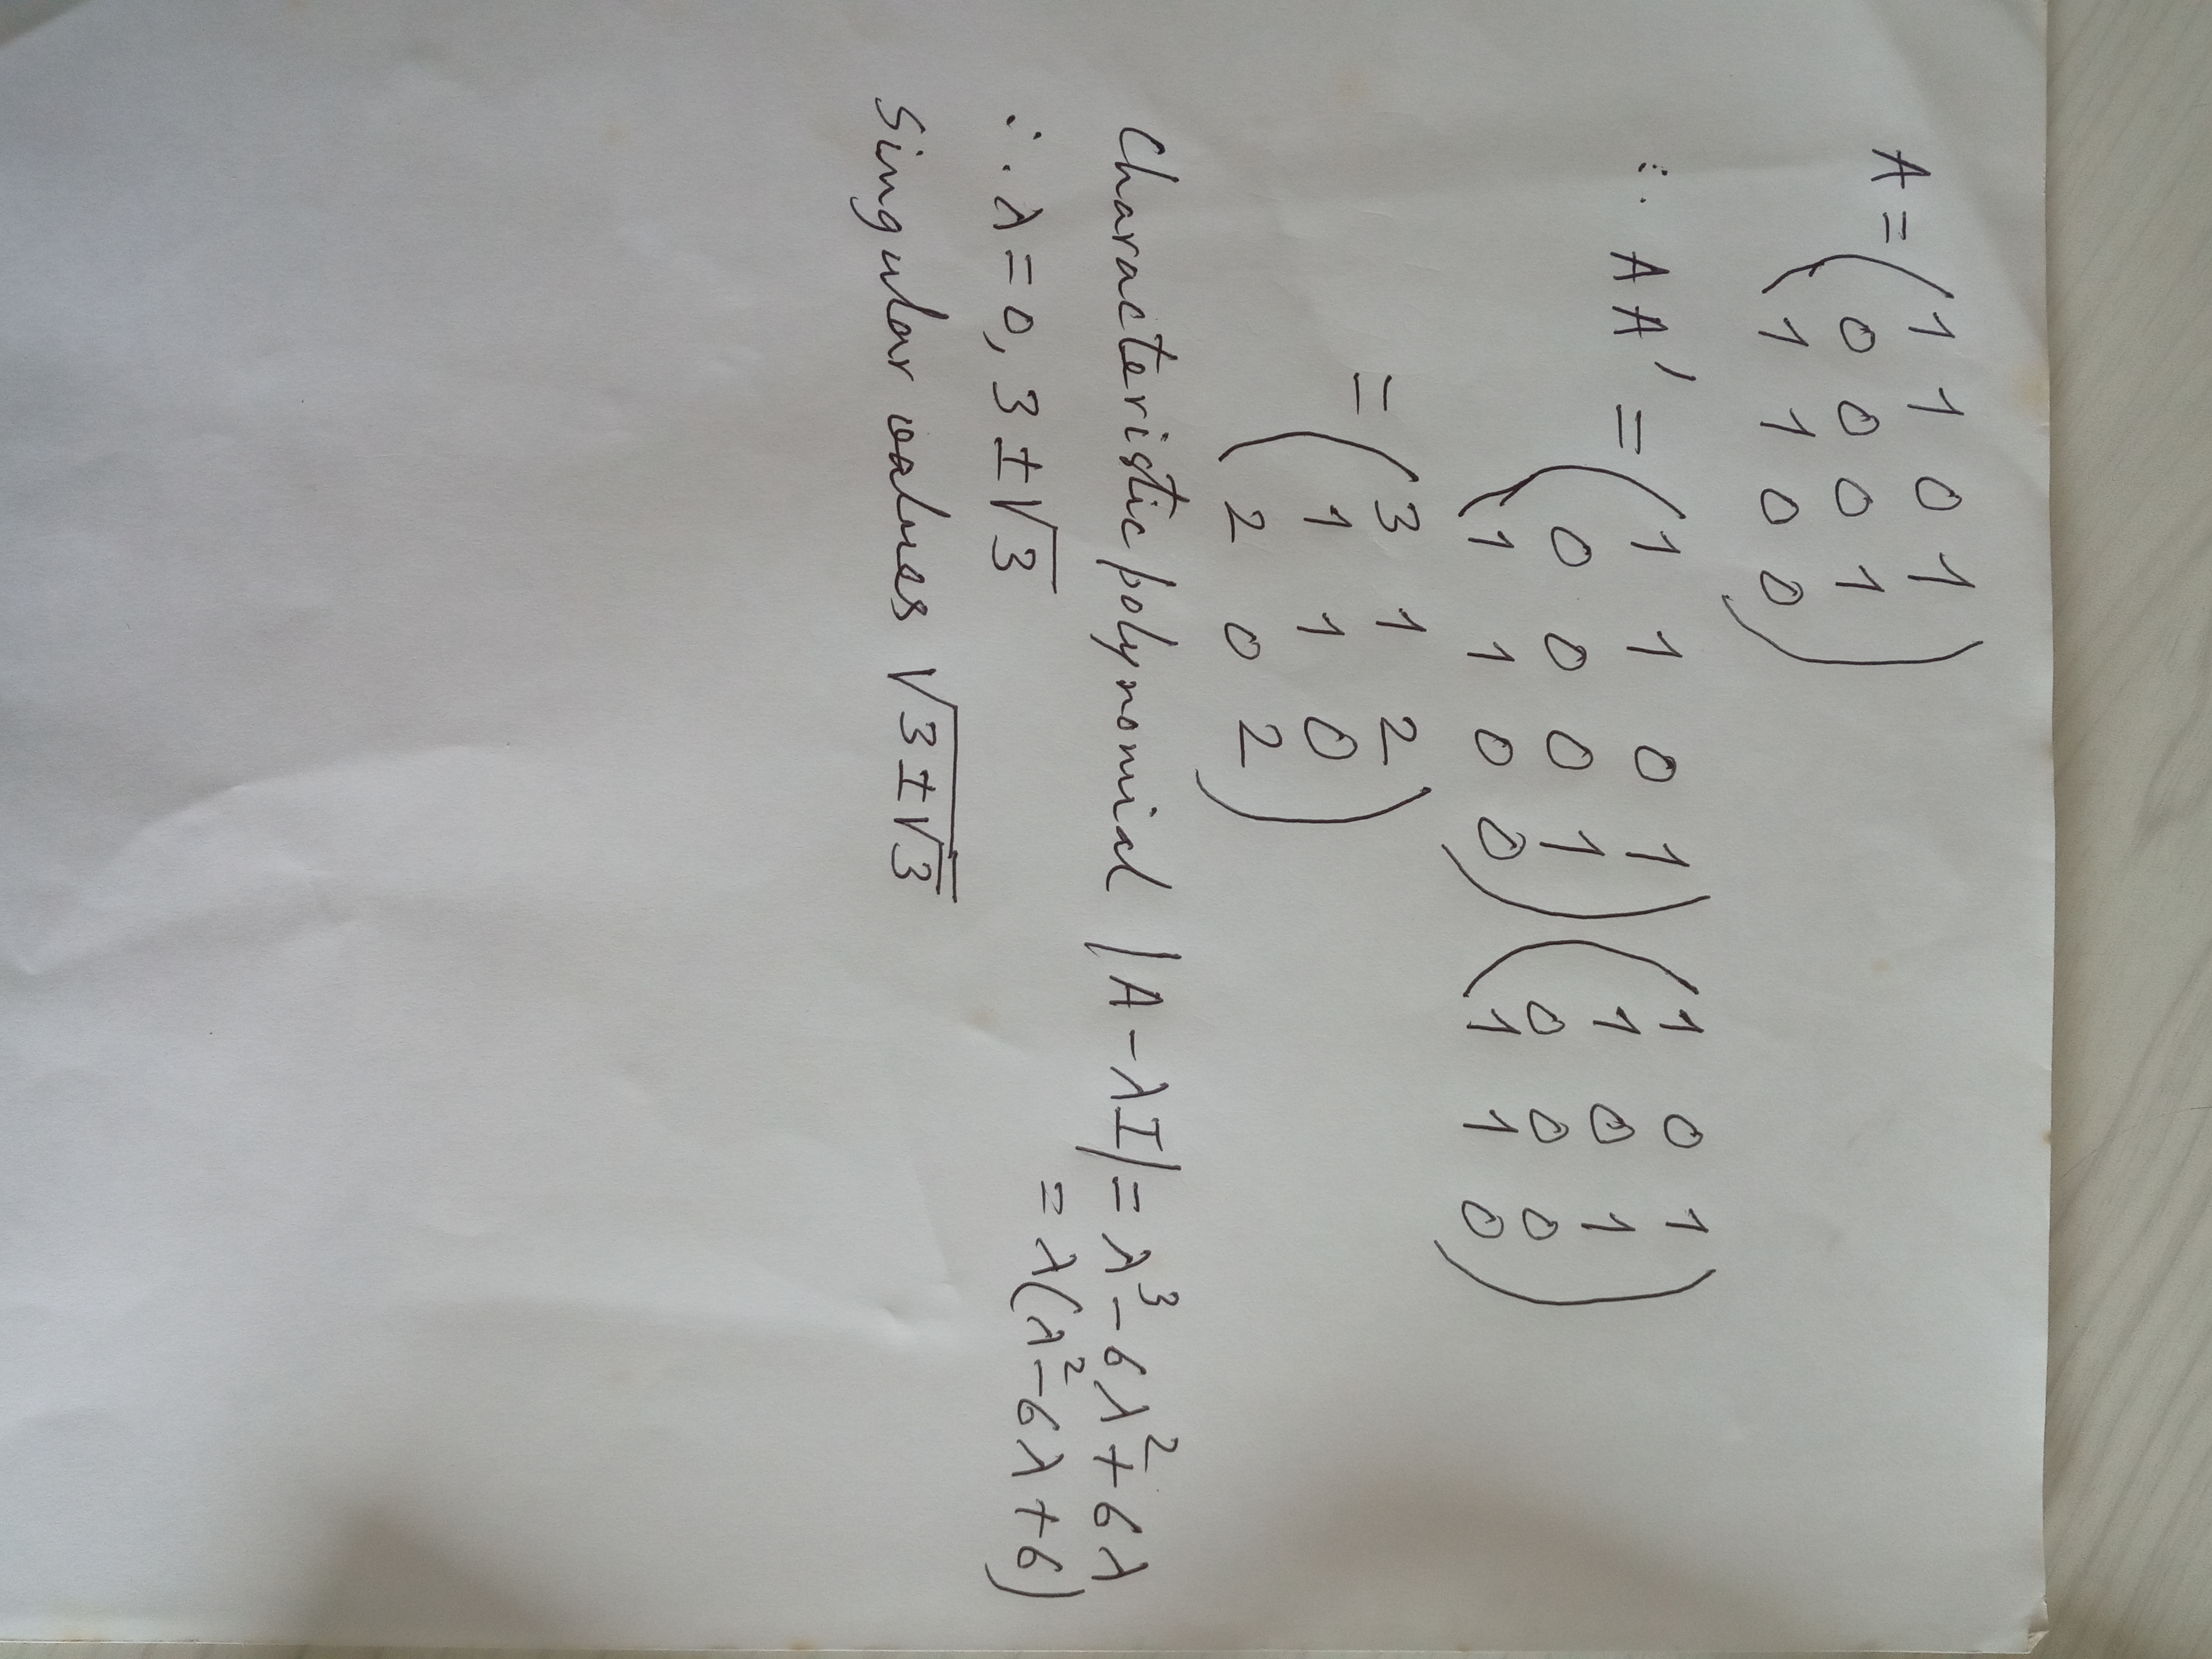 A = ( 1 1 0 1
0 0 0 1
1 1 0 0 )
∴ A A' = ( 1 1 0 1
0 0 0 1
1 1 0 0 ) ( 1 0 1
1 0 1
0 0 0
1 1 0 )
= ( 3 1 2
1 1 0
2 0 2 )
Characteristic polynomial |A - λI| = λ³ - 6λ² + 6λ
= λ(λ² - 6λ + 6)
∴ λ = 0, 3 ± √3
Singular values √(3 ± √3)